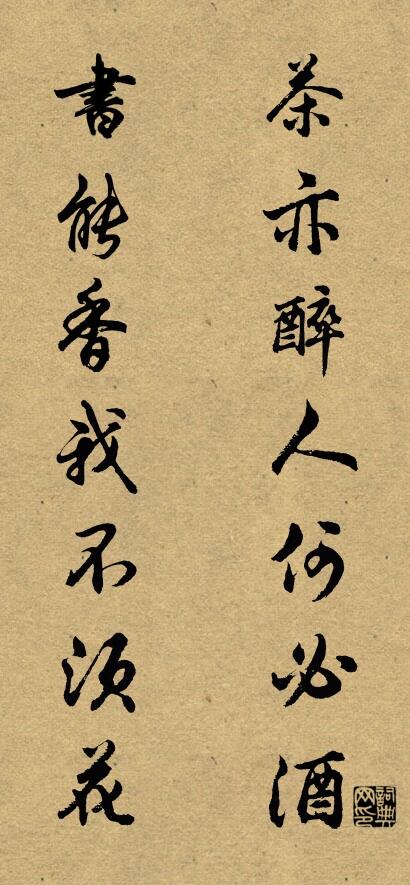 茶亦醉人何必酒
書能香我不須花
詞典網印